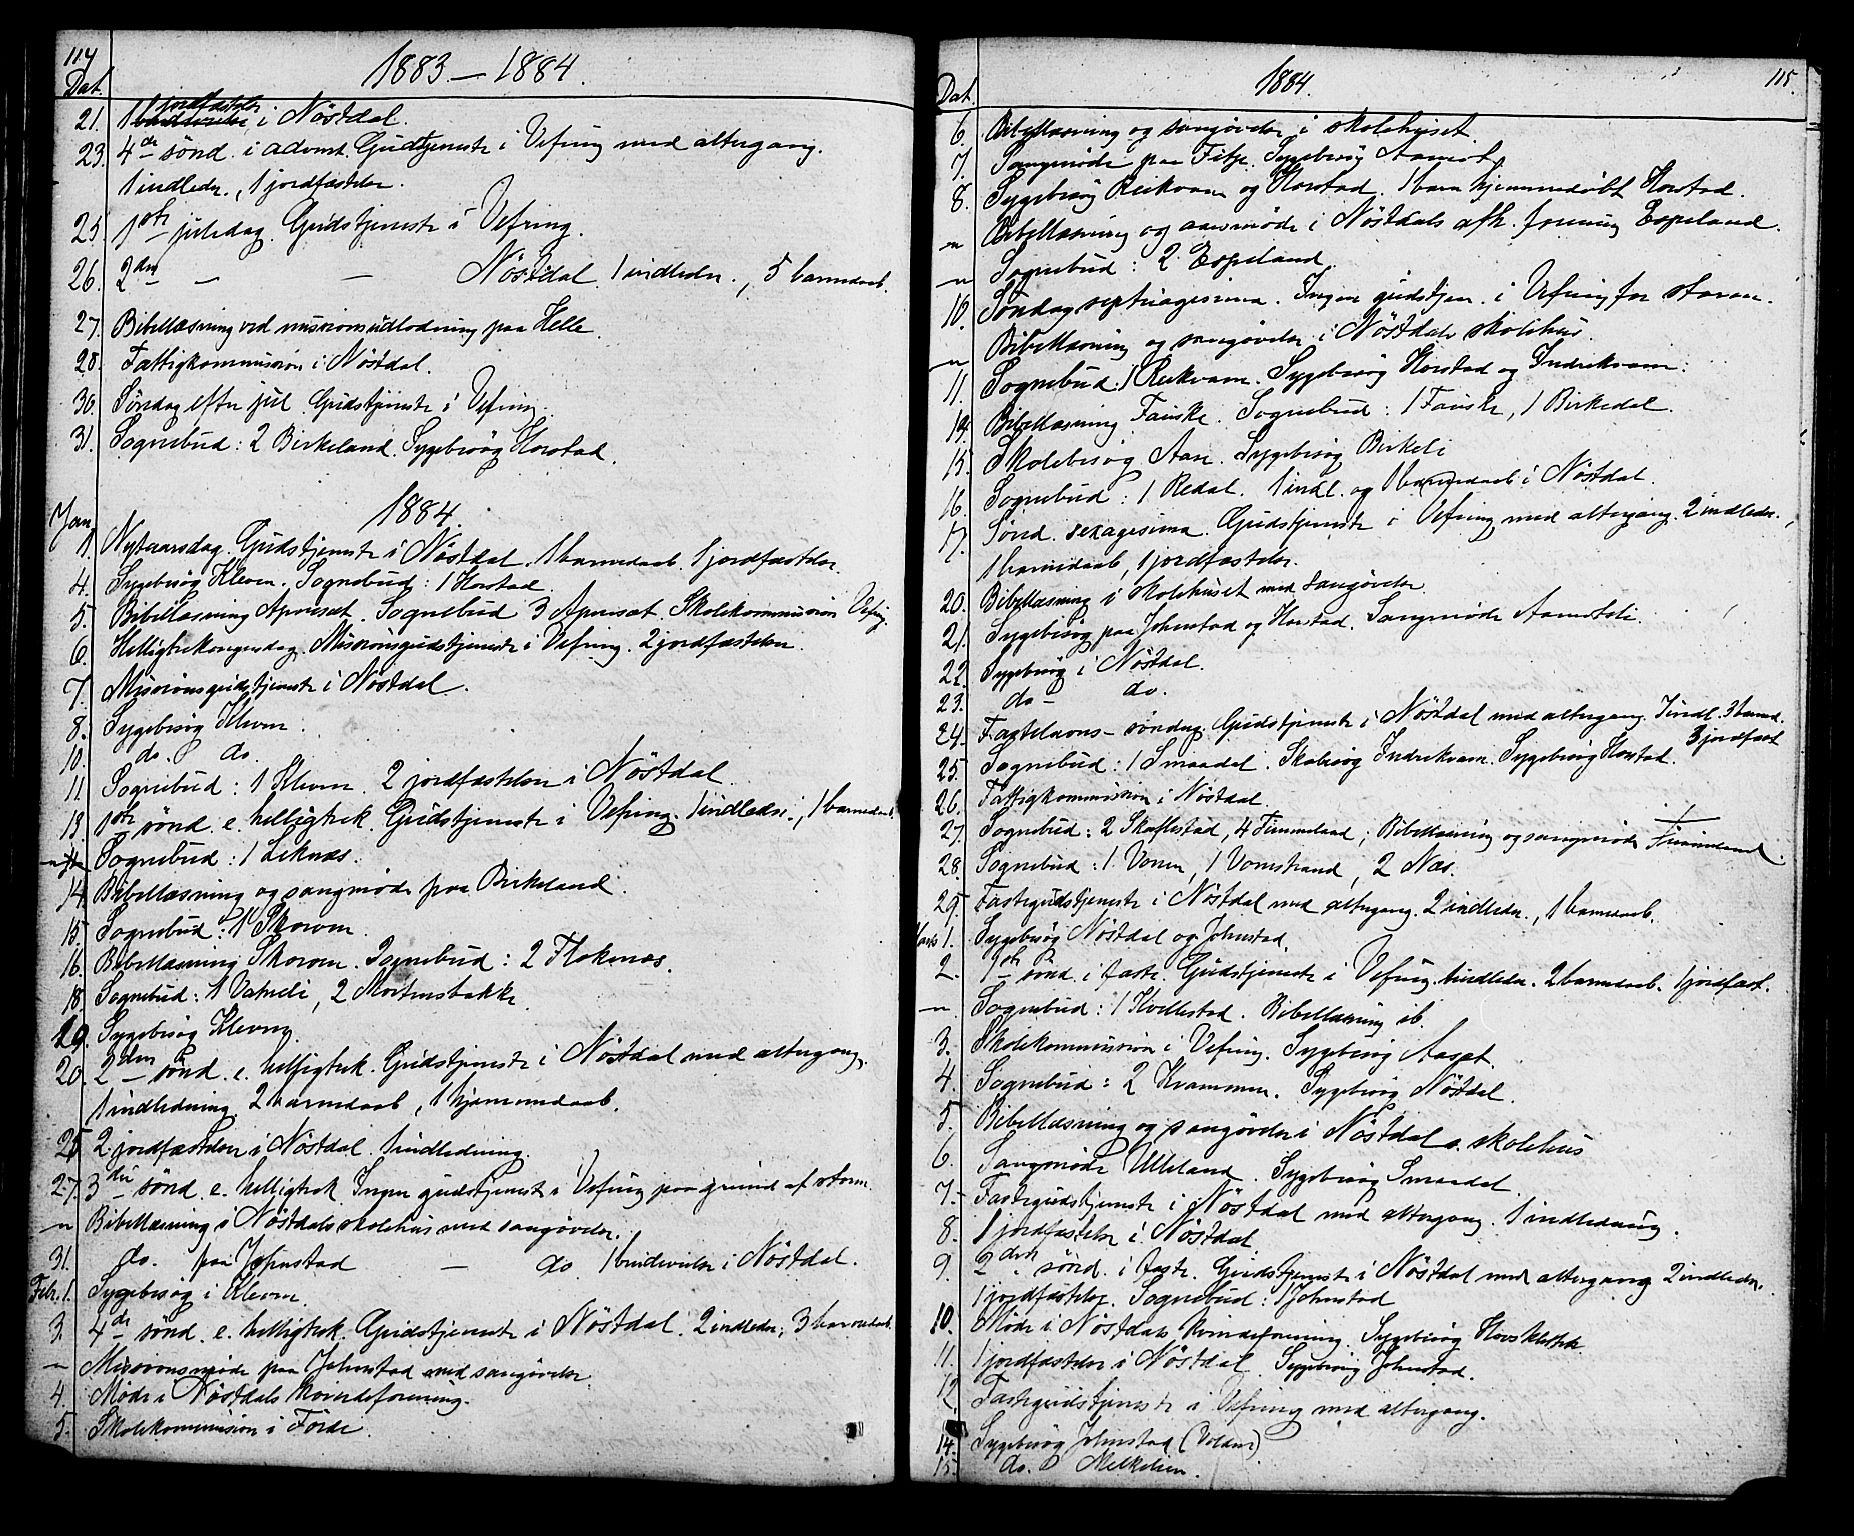 114
Dat.
1883 – 1884.
21. 1 jordfæstelse i Nöstdal.
23. 4de sønd. i advent. Gudtjeneste i Vefring med altergang.
1 indledn., 1 jordfæstelse.
25. 1ste juledag. Gudstjeneste i Vefring.
26. 2den — — Nöstdal. 1 indledn., 5 barnedaab.
27. Bibellæsning ved missionsudlodning paa Helle.
28. Fattigkommission i Nöstdal.
30. Søndag efter jul Gudstjeneste i Vefring.
31. Sognebud: 2 Birkeland. Sygebesøg Horstad.
1884.
Jan.
1. Nytaarsdag. Gudstjeneste i Nöstdal. 1 barnedaab. 1 jordfæstelse.
4. Sygebesøg Kleven. Sognebud: 1 Horstad
5. Bibellæsning Aprisæt. Sognebud 3 Aprisæt. Skolekommission Vefring.
6. Helligtrekongersdag. Missionsgudstjeneste i Vefring. 2 jordfæstelser.
7. Missionsgudstjeneste i Nöstdal.
8. Sygebesøg Kleven.
10. do. do.
11. Sognebud: 1 Kleven. 2 jordfæstelser i Nöstdal.
13. 1ste sønd. e. helligtrek. Gudstjeneste i Vefring. 1 indledn., 1 barnedaab.
" Sognebud: 1 Leknæs.
14. Bibellæsning og sangmøde paa Birkeland.
15. Sognebud: 1 Skorven.
16. Bibellæsning Skorven. Sognebud: 2 Flokenæs.
18. Sognebud: 1 Vatneli, 2 Mortensbakke.
19. Sygebesøg Kleven
20. 2den sønd. e. helligtrek. Gudstjeneste i Nöstdal med altergang.
1 indledning, 2 barnedaab, 1 hjemmedaab.
25. 2 jordfæstelser i Nöstdal. 1 indledning.
27. 3die sønd. e. helligtrek. Ingen gudstjeneste i Vefring paa grund af storm.
" Bibellæsning i Nöstdals skolehus med sangøvelse.
31. do. paa Johnstad — do. 1 brudevielse i Nöstdal.
Febr. 1. Sygebesøg i Kleven.
3. 4de sønd. e. helligtrek. Gudstjeneste i Nöstdal. 2 indledn., 3 barnedaab.
" Missionsmøde paa Johnstad med sangøvelse.
4. Møde i Nöstdals kvindeforening.
5. Skolekommission i Förde.
115.
Dat.
1884.
6. Bibellæsning og sangøvelse i skolehuset.
7. Sangmøde paa Fitje. Sygebesøg Aamot.
8. Sygebesøg Reikvam og Horstad. 1 barn hjemmedøbt Horstad.
" Bibellæsning og aarsmøde i Nöstdals afh. forening Espeland.
" Sognebud: 2 Espeland.
10. Søndag septuagesima. Ingen gudstjen. i Vefring for storm.
" Bibellæsning og sangøvelse i Nöstdals skolehus.
11. Sognebud: 1 Reikvam. Sygebesøg Horstad og Indrekvam.
14. Bibellæsning Fauske. Sognebud: 1 Fauske, 1 Birkedal.
15. Skolebesøg Aase. Sygebesøg Birkeli
16. Sognebud: 1 Redal. 1 indl. og 1 barnedaab i Nöstdal.
17. Sønd. sexagesima. Gudstjeneste i Vefring med altergang. 2 indledn.,
1 barnedaab, 1 jordfæstelse.
20. Bibellæsning i skolehuset med sangøvelse.
21. Sygebesøg paa Johnstad og Horstad. Sangmøde Aamotsli.
22. Sygebesøg i Nöstdal.
23. do – do.
24. Fastelavns-søndag. Gudstjeneste i Nöstdal med altergang. 1 indl. 3 barned.
3 jordfæst
25. Sognebud: 1 Smaadal. Skolebesøg Indrekvam. Sygebesøg Horstad.
26. Fattigkommission i Nöstdal.
27. Sognebud: 2 Skaflestad, 4 Timmeland; Bibellæsning og sangmøde Timmeland.
28. Sognebud: 1 Vonen, 1 Vonstrand, 2 Næs.
29. Fastegudstjeneste i Nöstdal med altergang. 2 indledn., 1 barnedaab.
Marts 1. Sygebesøg Nöstdal og Johnstad.
2. 1ste sønd. i faste. Gudstjeneste i Vefring. 1 indledn. 2 barnedaab. 1 jordfæst.
" Sognebud: 1 Kvellestad. Bibellæsning ib.
3. Skolekommission i Vefring. Sygebesøg Aaset.
4. Sognebud: 2 Krammen. Sygebesøg Nöstdal.
5. Bibellæsning og sangøvelse i Nöstdals skolehus
6. Sangmøde Ulleland. Sygebesøg Smaadal.
7. Fastegudstjeneste i Nöstdal med altergang. 1 indledning.
8. 1 jordfæstelse i Nöstdal.
9. 2den sønd. i faste. Gudstjeneste i Nöstdal med altergang 2 indledn.
1 jordfæstelse. Sognebud: 1 Johnstad
10. Møde i Nöstdals kvindeforening. Sygebesøg
11. 1 jordfæstelse i Nöstdal. Sygebesøg Johnstad.
12. Fastegudstjeneste i Vefring med altergang.
14. Sygebesøg Johnstad (Volden)
15. do.